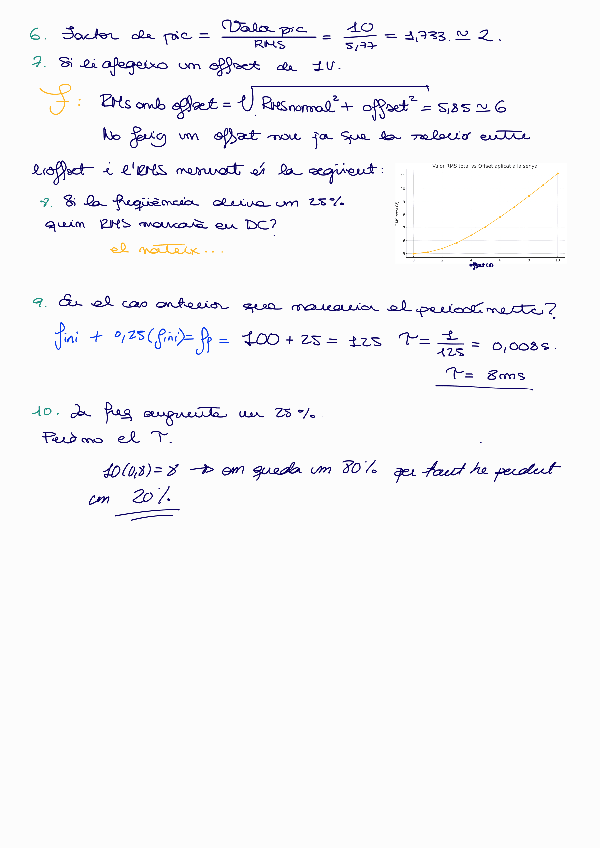 6. Factor de pic = Valor pic / RMS = 10 / 5,77 = 1,733 ≃ 2.
7. Si li afegeixo un offset de 1V.
f: RMS amb offset = √(RMS normal² + offset²) = 5,85 ≃ 6
No faig un offset nou ja que la relació entre
l'offset i l'RMS mesurat és la següent:
Valor RMS total vs Offset aplicat a la senyal
offset (V)
8. Si la freqüència deriva un 25%
quin RMS marcarà en DC?
el mateix...
9. En el cas anterior que marcaria el periodímetre?
fini + 0,25(fini) = fp = 100 + 25 = 125 T = 1 / 125 = 0,008s.
T = 8ms
10. La freq augmenta un 25%.
Però no el T.
10(0,8) = 8 → em queda un 80% per tant he perdut
un 20%